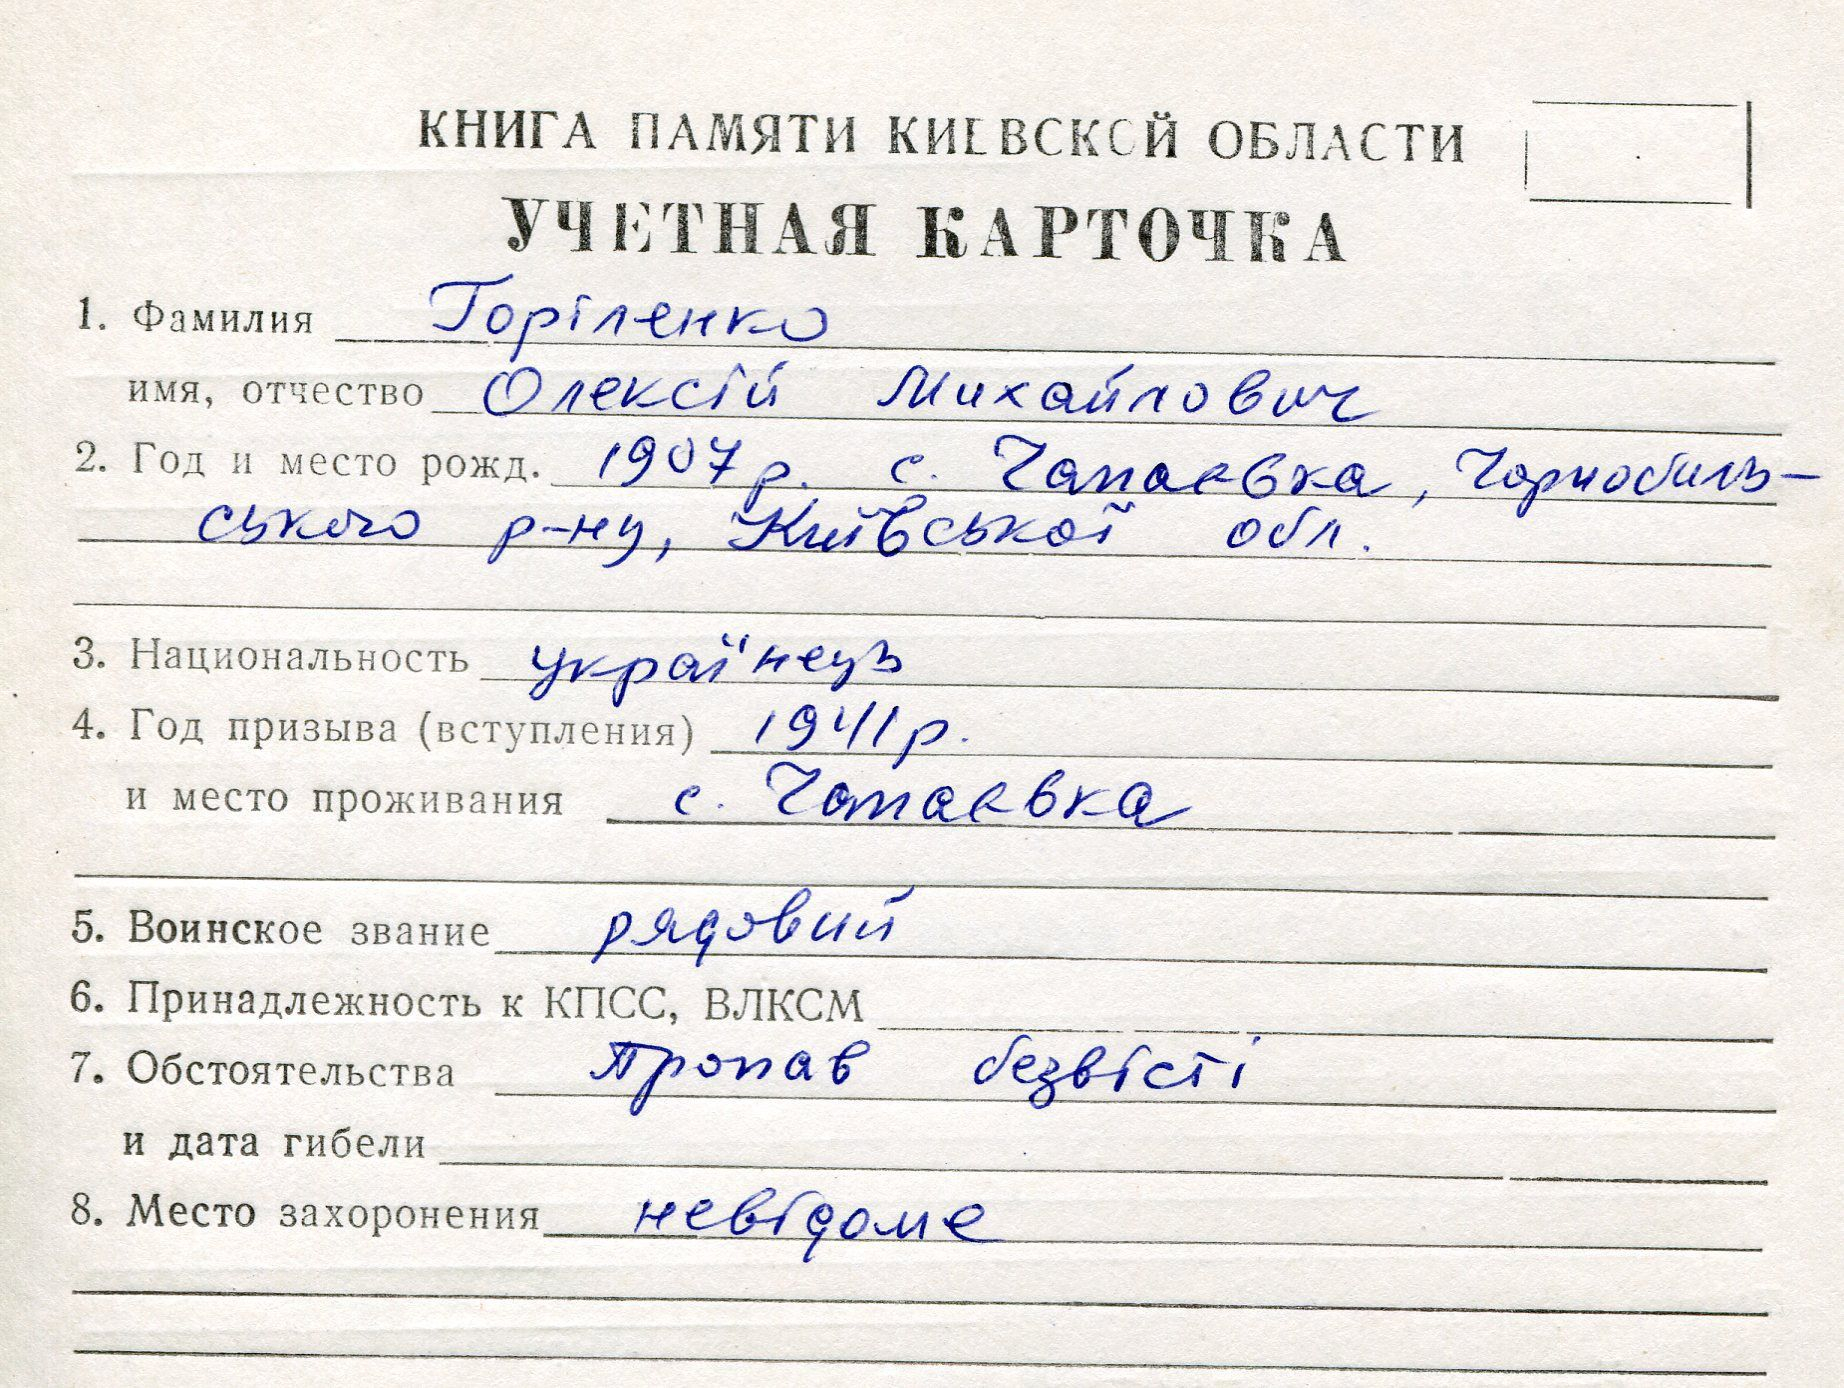 КНИГА ПАМЯТИ КИЕВСКОЙ ОБЛАСТИ
УЧЕТНАЯ КАРТОЧКА
1. Фамилия Горіленко
имя, отчество Олексій Михайлович
2. Год и место рожд. 1907 р. с. Чапаевка, Чорнобиль-
ського р-ну, Київської обл.
3. Национальность українець
4. Год призыва (вступления) 1941 р.
и место проживания с. Чапаевка
5. Воинское звание рядовий
6. Принадлежность к КПСС, ВЛКСМ
7. Обстоятельства Пропав безвісті
и дата гибели
8. Место захоронения невідоме